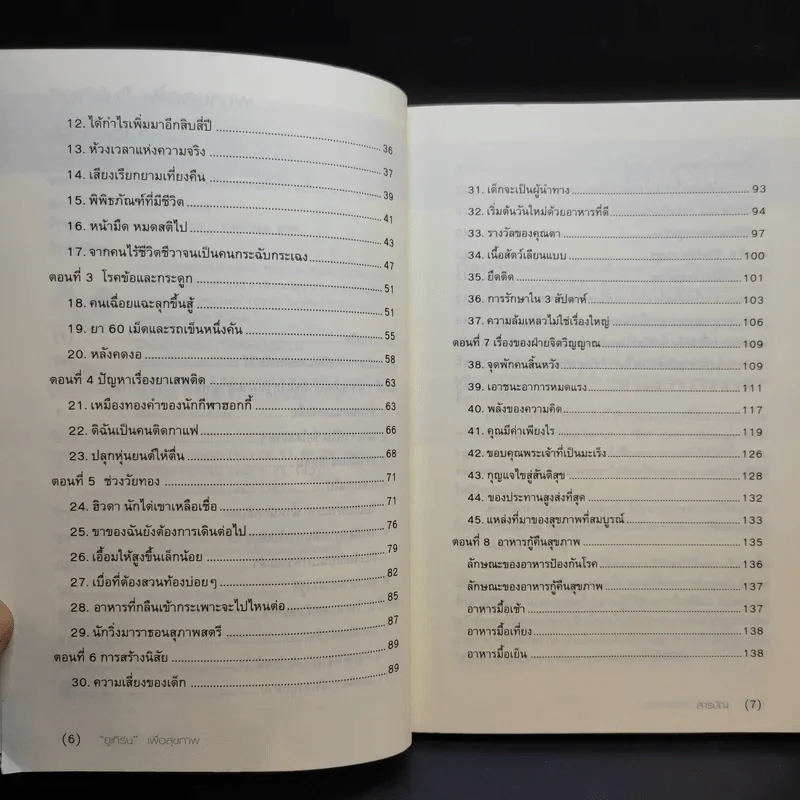 12. ได้กำไรเพิ่มมาอีกสิบสี่ปี ........ 36
13. ห้วงเวลาแห่งความจริง ........ 37
14. เสียงเรียกยามเที่ยงคืน ........ 39
15. พิพิธภัณฑ์ที่มีชีวิต ........ 41
16. หน้ามืด หมดสติไป ........ 43
17. จากคนไร้ชีวิตชีวาจนเป็นคนกระฉับกระเฉง ........ 47
ตอนที่ 3 โรคข้อและกระดูก ........ 51
18. คนเฉื่อยแฉะลุกขึ้นสู้ ........ 51
19. ยา 60 เม็ดและรถเข็นหนึ่งคัน ........ 55
20. หลังคดงอ ........ 58
ตอนที่ 4 ปัญหาเรื่องยาเสพติด ........ 63
21. เหมืองทองคำของนักกีฬาฮอกกี้ ........ 63
22. ดิฉันเป็นคนติดกาแฟ ........ 66
23. ปลุกหุ่นยนต์ให้ตื่น ........ 68
ตอนที่ 5 ช่วงวัยทอง ........ 71
24. ฮิวดา นักไต่เขาเหลือเชื่อ ........ 71
25. ขาของฉันยังต้องการเดินต่อไป ........ 76
26. เอื้อมให้สูงขึ้นเล็กน้อย ........ 79
27. เบื่อที่ต้องสวนท้องบ่อยๆ ........ 82
28. อาหารที่กลืนเข้ากระเพาะจะไปไหนต่อ ........ 85
29. นักวิ่งมาราธอนสุภาพสตรี ........ 87
ตอนที่ 6 การสร้างนิสัย ........ 89
30. ความเสี่ยงของเด็ก ........ 89
(6) "ยูเทิร์น" เพื่อสุขภาพ
31. เด็กจะเป็นผู้นำทาง ........ 93
32. เริ่มต้นวันใหม่ด้วยอาหารที่ดี ........ 94
33. รางวัลของคุณตา ........ 97
34. เนื้อสัตว์เลียนแบบ ........ 100
35. ยึดติด ........ 101
36. การรักษาใน 3 สัปดาห์ ........ 103
37. ความล้มเหลวไม่ใช่เรื่องใหญ่ ........ 106
ตอนที่ 7 เรื่องของฝ่ายจิตวิญญาณ ........ 109
38. จุดพักคนสิ้นหวัง ........ 109
39. เอาชนะอาการหมดแรง ........ 111
40. พลังของความคิด ........ 117
41. คุณมีค่าเพียงไร ........ 119
42. ขอบคุณพระเจ้าที่เป็นมะเร็ง ........ 126
43. กุญแจไขสู่สันติสุข ........ 128
44. ของประทานสูงส่งที่สุด ........ 132
45. แหล่งที่มาของสุขภาพที่สมบูรณ์ ........ 133
ตอนที่ 8 อาหารกู้คืนสุขภาพ ........ 135
ลักษณะของอาหารป้องกันโรค ........ 136
ลักษณะของอาหารกู้คืนสุขภาพ ........ 137
อาหารมื้อเช้า ........ 137
อาหารมื้อเที่ยง ........ 138
อาหารมื้อเย็น ........ 138
สารบัญ (7)